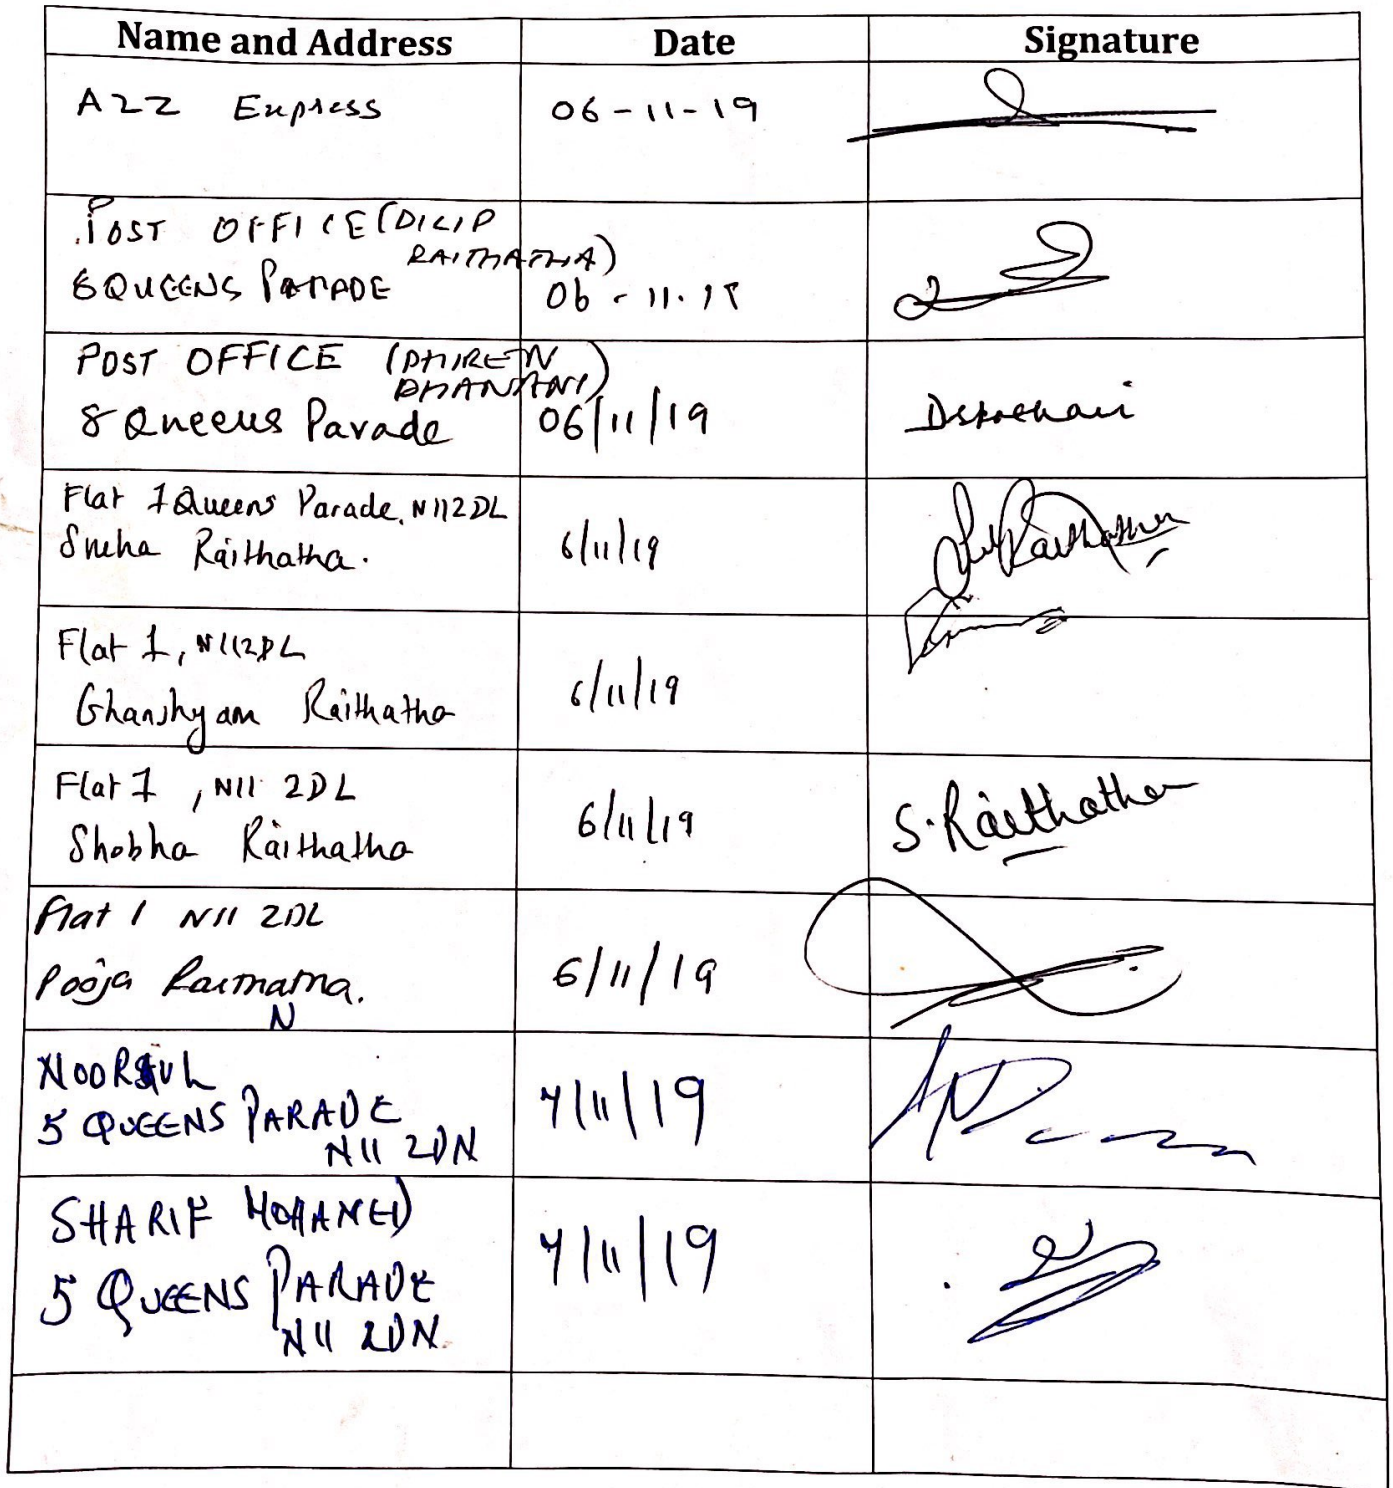 Name and Address Date Signature
A2Z Express 06-11-19
POST OFFICE (DILIP
RAITHATHA)
8 QUEENS PARADE 06-11-19
POST OFFICE (DHIREN
DHANANI)
8 Queens Parade 06/11/19
Flat 1 Queens Parade, N112DL
Sneha Raithatha. 6/11/19 Raithatha
Flat 1, N112DL
Ghanshyam Raithatha 6/11/19
Flat 1, N11 2DL
Shobha Raithatha 6/11/19 S.Raithatha
Flat 1 N11 2DL
Pooja Raithatha. 6/11/19
N
5 QUEENS PARADE 7/11/19
N11 2DN
SHARIF MOHAMED
5 QUEENS PARADE 7/11/19
N11 2DN